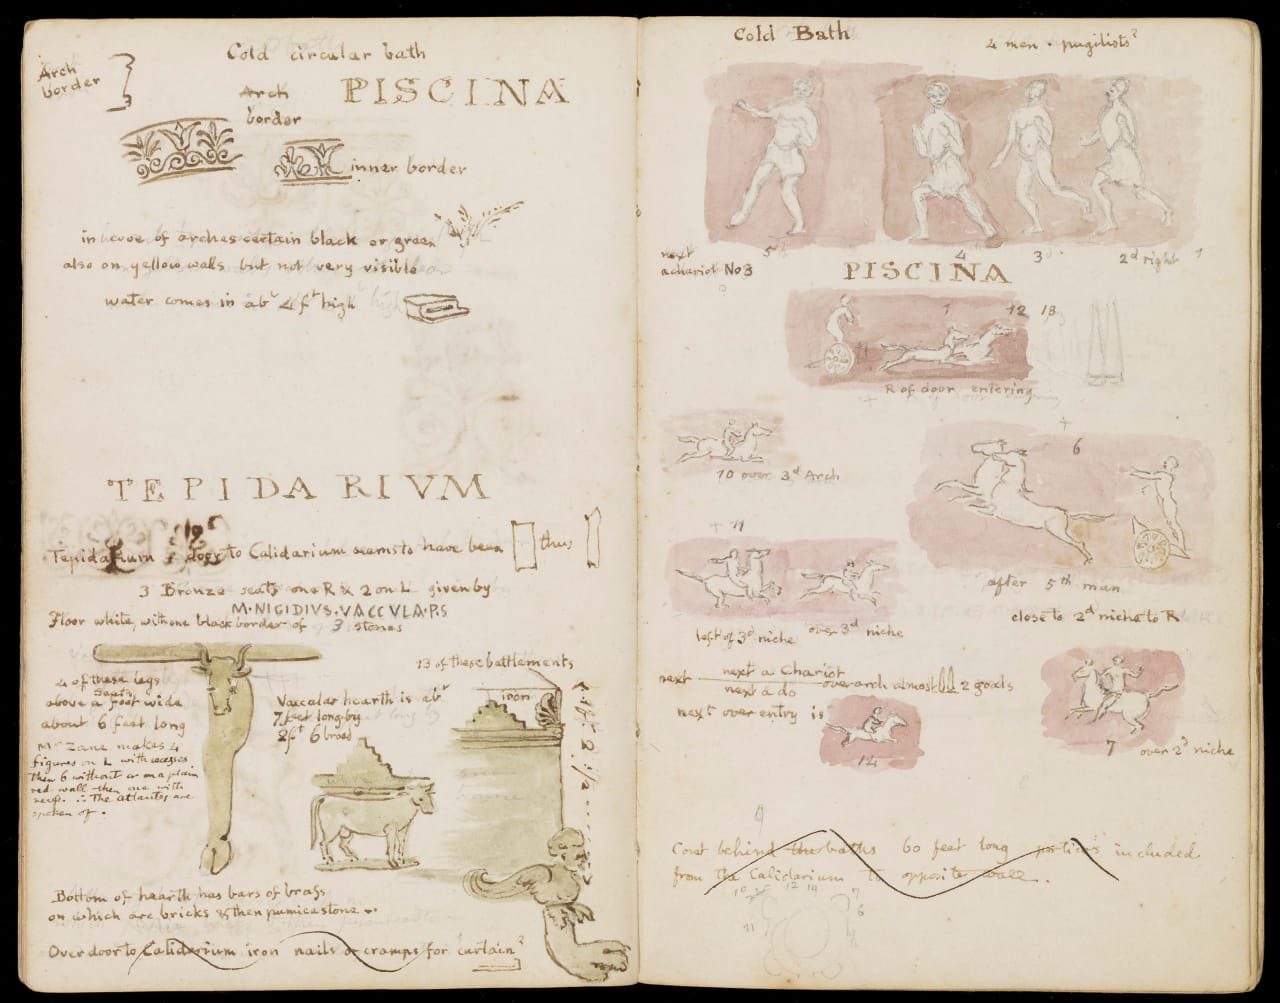 Cold circular bath
Arch
border
Arch
border
PISCINA
inner border
in
of arches certain black or green
also on yellow walls but not very visible
water comes in abt 4 ft high
TEPIDARIVM
Tepidarium
to Calidarium seems to have been
thus
3 Bronze seats one R & 2 on L given by
M·NIGIDIVS·VACCVLA·P·S
Floor white, with one black border of 3 stones
13 of these battlements
4 of these legs
seats
above a foot wide
about 6 feet long
Mr Zane makes 4
figures on L with recesses
then 6 without or on a plain
red wall then one with
recess. ∴ The atlantes are
spoken of.
Vaccular hearth is abt
7 feet long by
2 ft 6 broad
iron
1 ft 2 1/2
Bottom of hearth has bars of brass
on which are bricks & then pumicestone
Over door to Calidarium iron nails or cramps for curtain?
Cold Bath
4 men · pugilists?
5th
4th
3d
2d right
1
next
a chariot No 3
PISCINA
1
12
13
R of door entering
10 over 3d Arch
6
after 5th man
close to 2d niche to R
11
left of 3d niche
over 3d niche
next
next a Chariot
next a do
over arch almost
2 goals
next over entry is
14
7
over 2d niche
Court behind the baths 60 feet long
included
from the Calidarium to opposite wall.
10
12
14
7
6
11